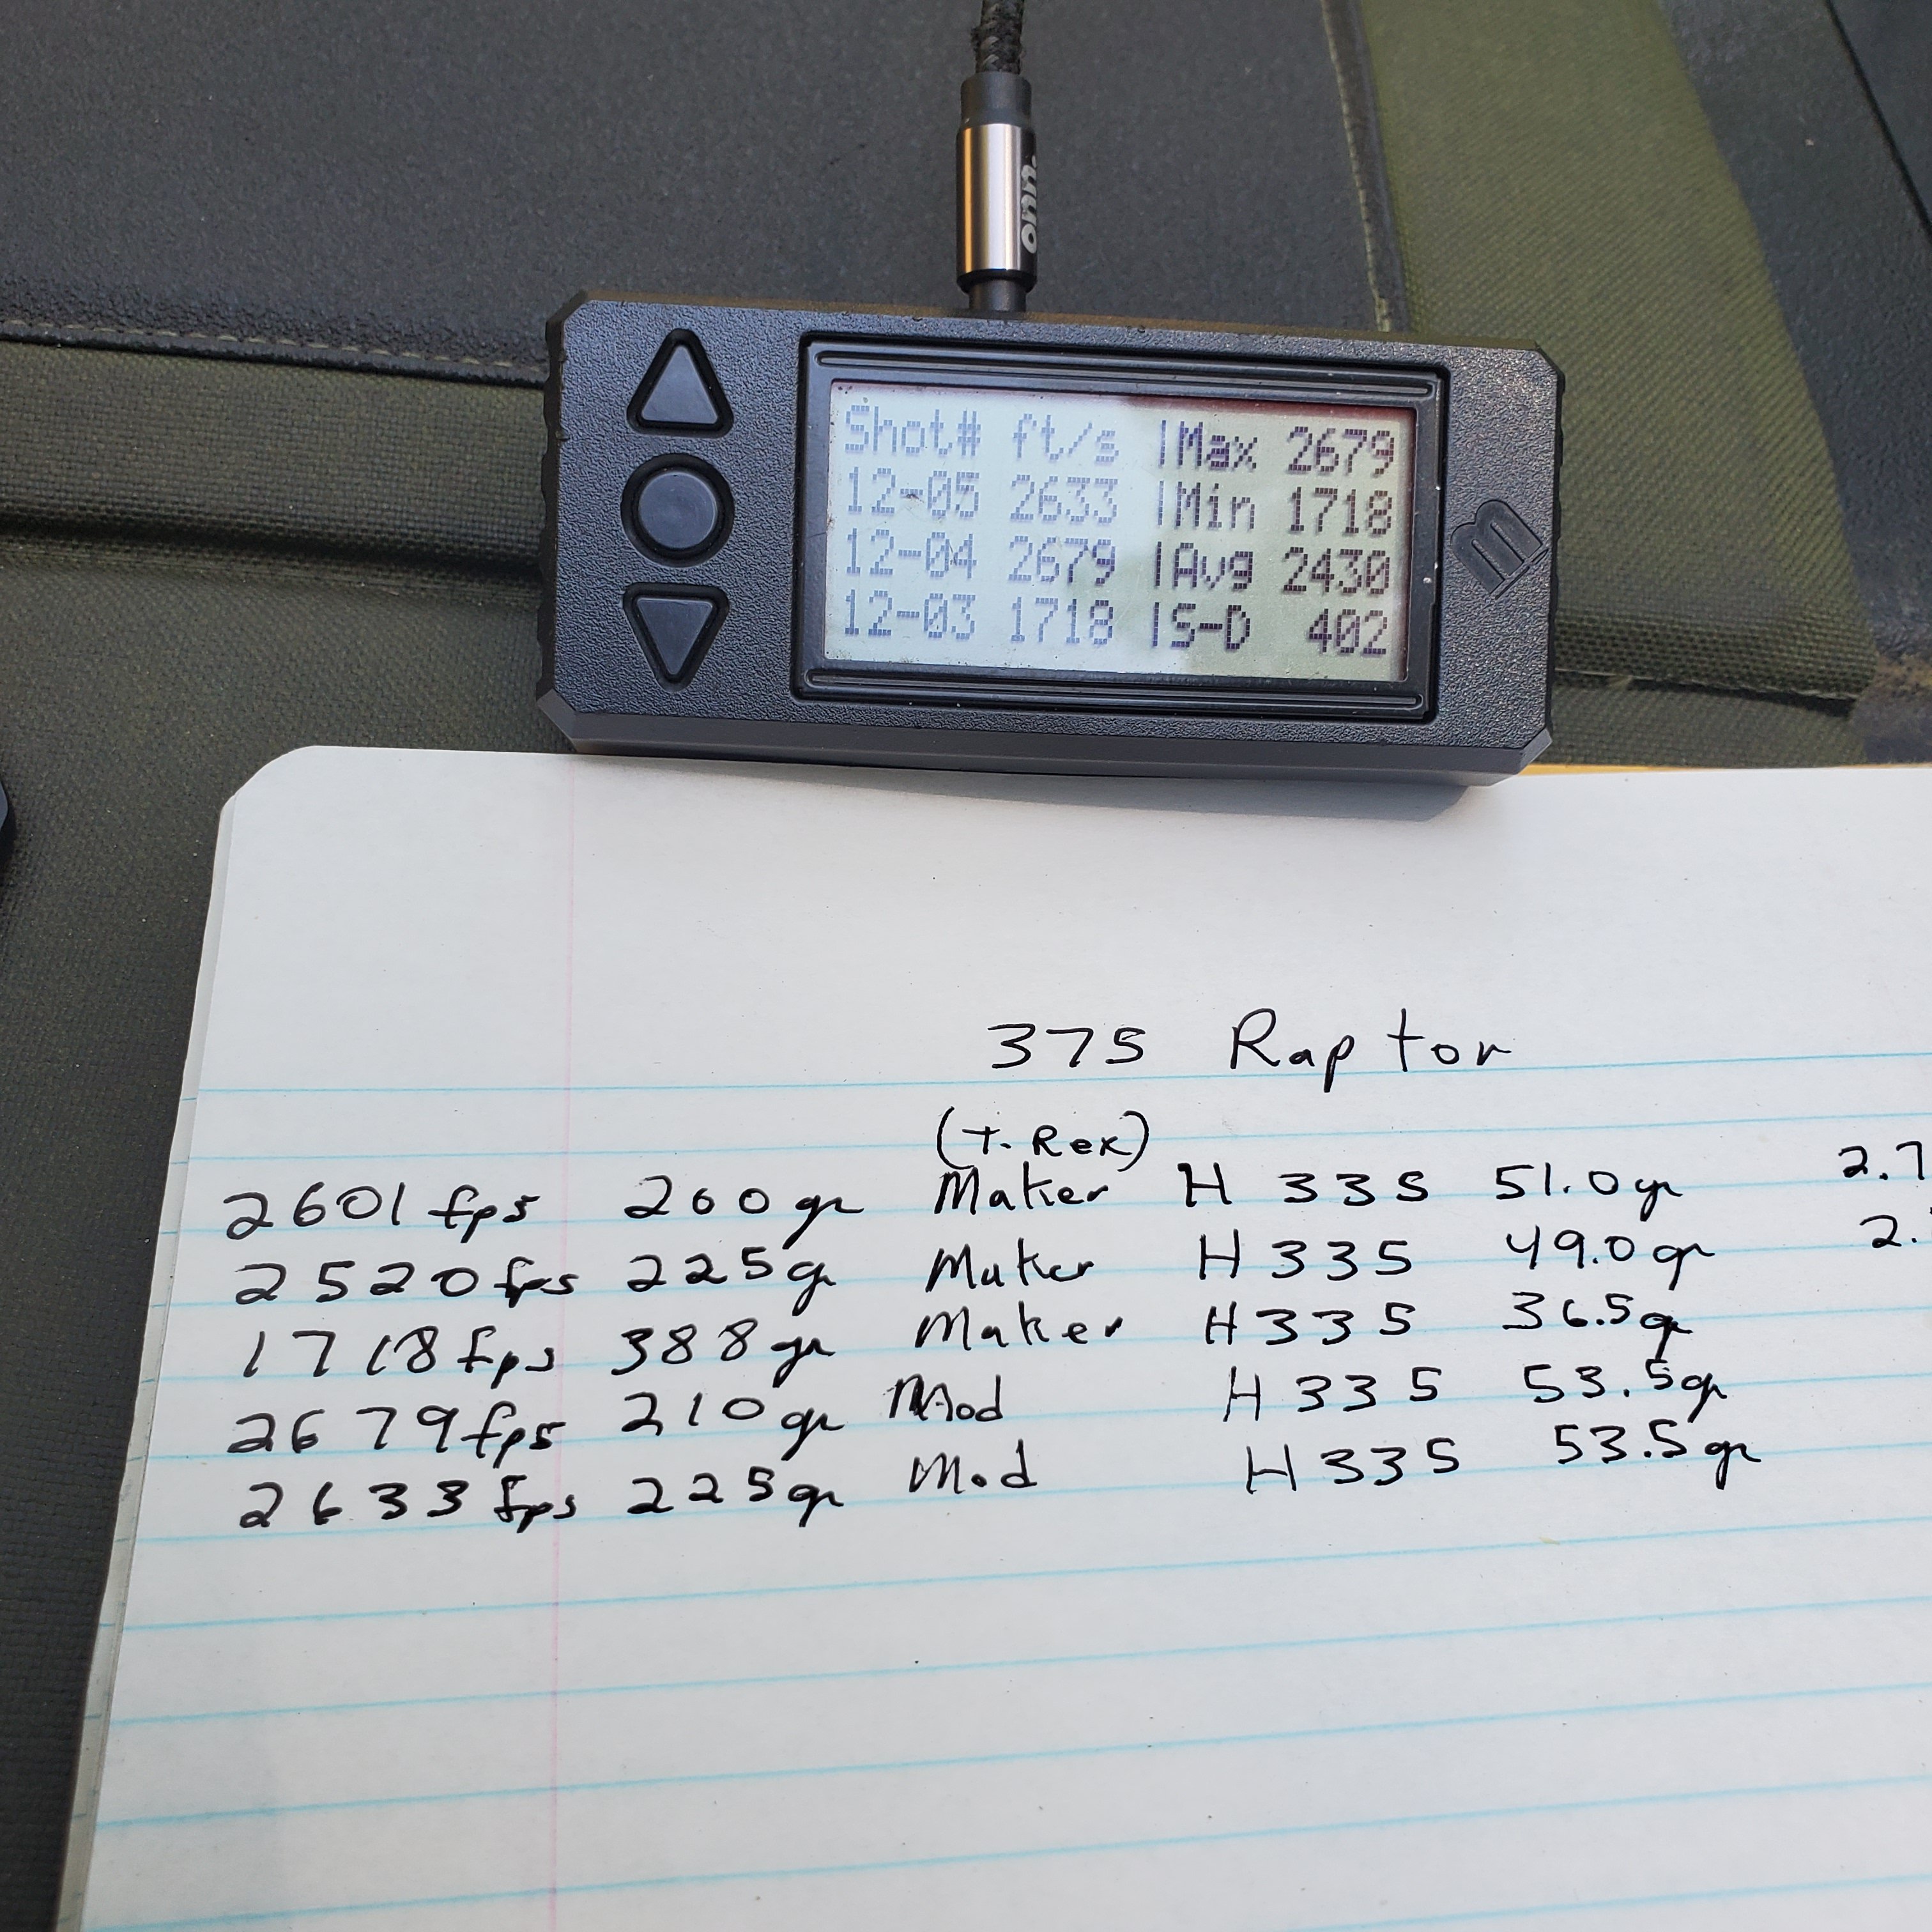 onn.
Shot# ft/s |Max 2679
12-05 2633 |Min 1718
12-04 2679 |Avg 2430
12-03 1718 |S-D 402
m
375 Raptor
(T-Rex)
2601 fps 200gr Maker H 335 51.0gr 2.7
2520fps 225gr Maker H 335 49.0gr 2.
1718fps 388gr Maker H335 36.5gr
2679fps 210gr Mod H 335 53.5gr
2633 fps 225gr Mod H 335 53.5gr